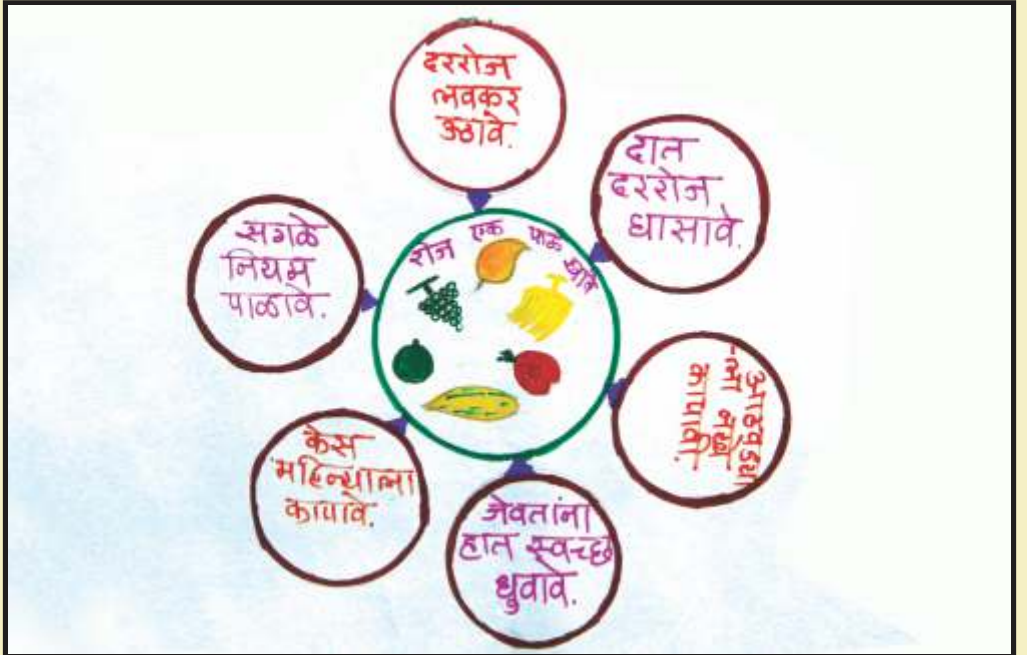 दररोज
लवकर
उठावे.
दात
दररोज
घासावे.
आठवड्या
-ला नखे
कापावी.
जेवतांना
हात स्वच्छ
धुवावे.
केस
महिन्याला
कापावे.
सगळे
नियम
पाळावे.
रोज एक फळ खावे